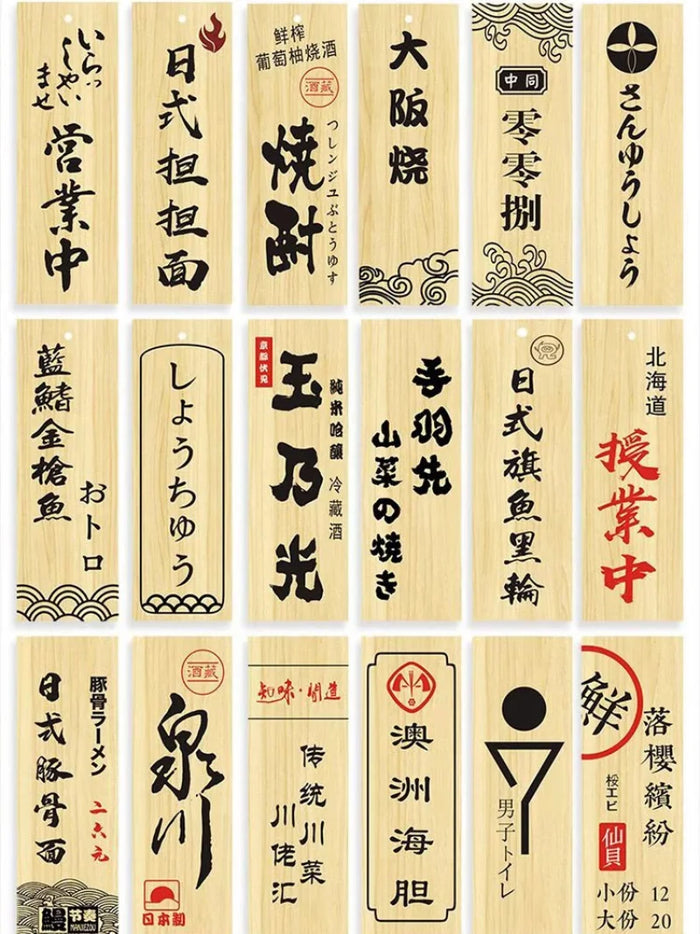 いらっ
しゃい
ませ
営業中
日式担担面
鲜榨
葡萄柚烧酒
酒藏
焼酎
つレンジユぶとうゆす
大阪烧
中同
零零捌
さんゆうしょう
藍鰭金槍魚
おトロ
しょうちゅう
京都伏见
玉乃光
純米吟釀 冷藏酒
手羽先
山菜の焼き
日式旗魚黑輪
北海道
授業中
豚骨ラーメン
日式豚骨面
二六元
鰻
节奏
MANJIEZOU
酒藏
泉川
日本製
知味·閒道
传统川菜
川佬汇
澳洲海胆
男子トイレ
鲜
落櫻繽紛
桜エビ
仙貝
小份 12
大份 20